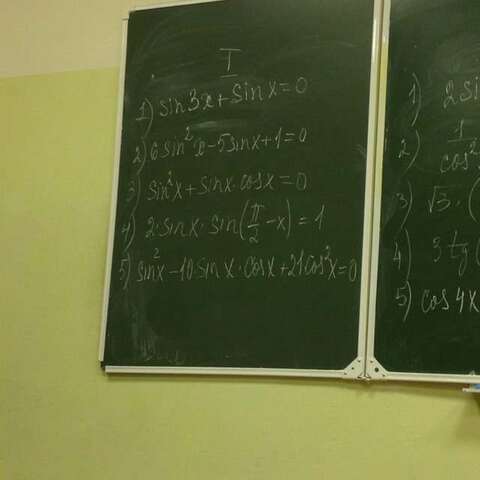 I
1) sin3x+sinx=0
2) 6sin²x-5sinx+1=0
3) sin²x+sinx·cosx=0
4) 2·sinx·sin(π/2-x)=1
5) sin²x-10sinx·cosx+21cos²x=0
1) 2si
2) 1/cos²
3) √3·(
4) 3tg(
5) cos4x